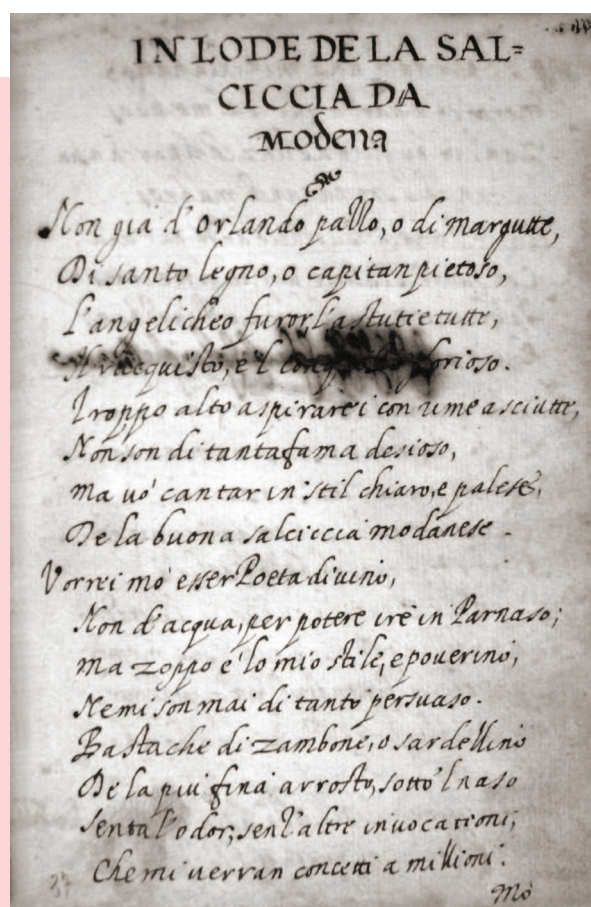 IN LODE DE LA SAL=
CICCIA DA
Modena
Non già d'Orlando pazzo, o di margutte,
Di santo legno, o capitan pietoso,
L'angelicheo furor l'astutie tutte,
Il racquisto, e'l glorioso.
Troppo alto aspirarei con rime asciutte,
Non son di tanta fama desioso,
Ma uo' cantar in stil chiaro, e palese,
De la buona salciccia modanese.
Vorrei mo' esser Poeta diuino,
Non d'acqua, per potere ire in Parnaso;
Ma zoppo è lo mio stile, e pouerino,
Ne mi son mai di tanto persuaso.
Basta che di zambone, o sardellino
De la piu fina arrosto, sotto'l naso
Senta l'odor, senz'altre inuocationi,
Che mi uerran concetti a millioni.
37
Mo